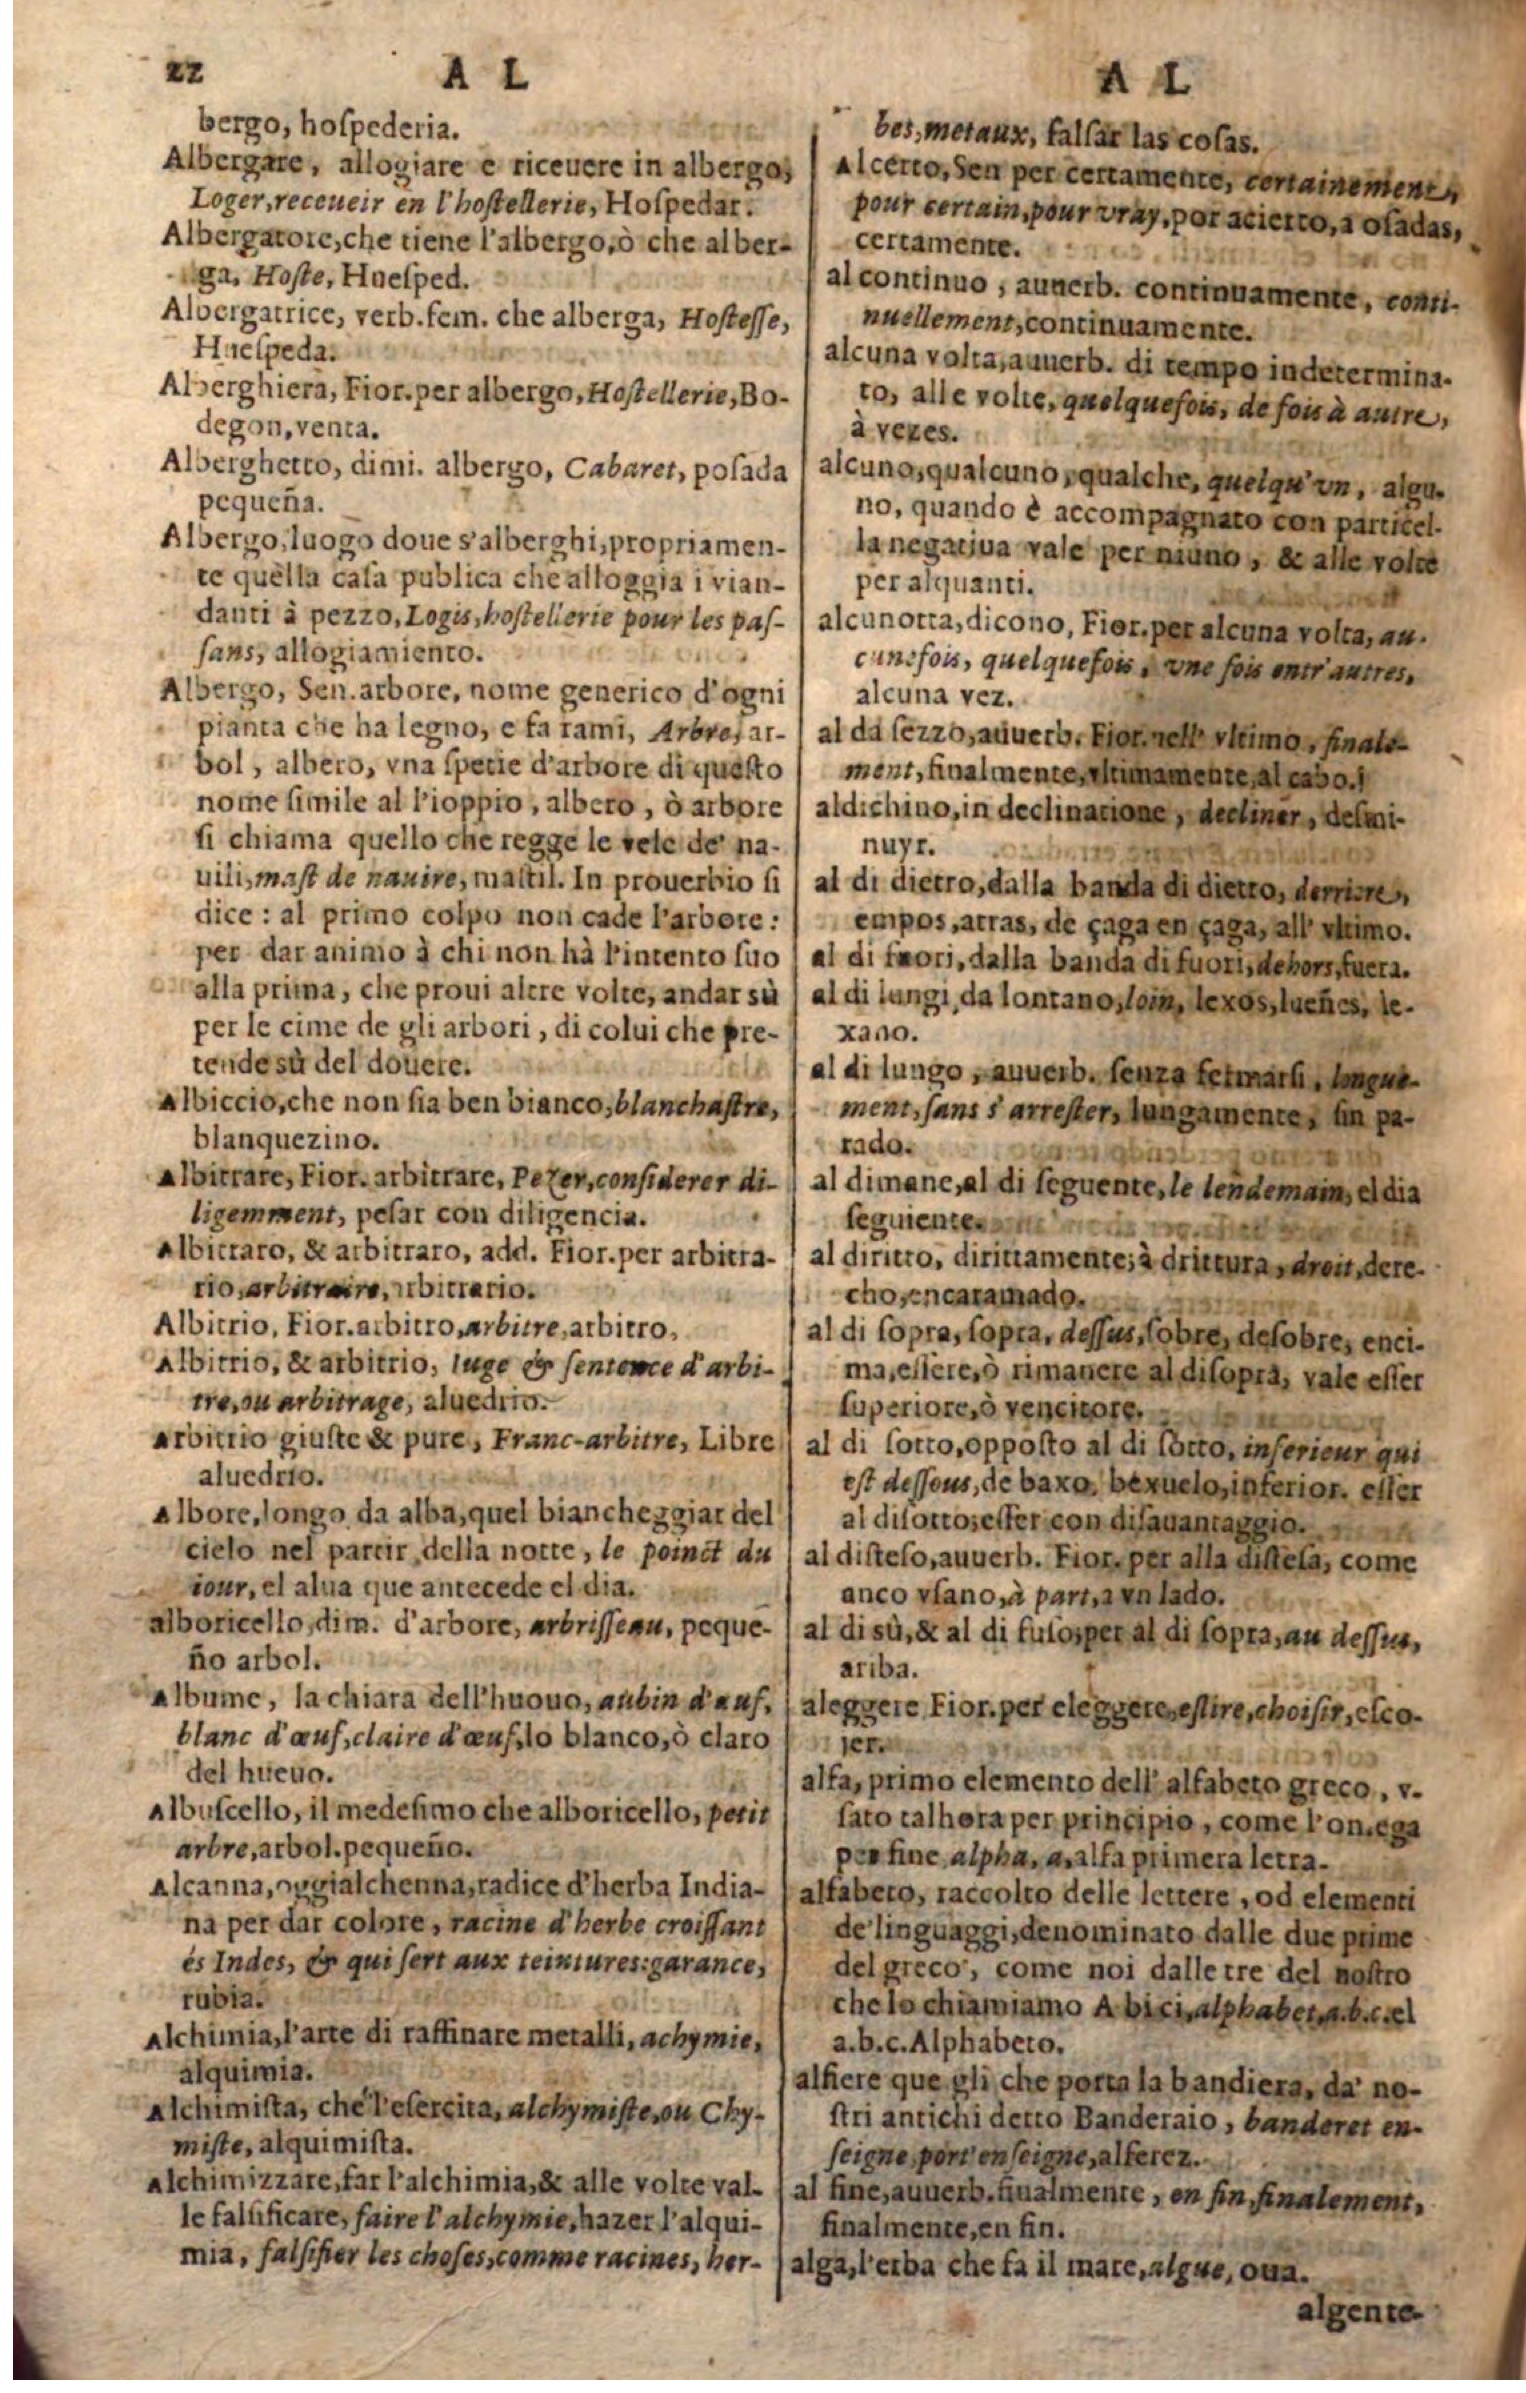 22 A L
bergo, hoſpederia.
Albergare, allogiare e riceuere in albergo,
Loger, receueir en l'hoſtellerie, Hoſpedar.
Albergatore, che tiene l'albergo, ò che alber-
ga, Hoſte, Hueſped.
Albergatrice, verb. fem. che alberga, Hoſteſſe,
Hueſpeda.
Alberghiera, Fior. per albergo, Hoſtellerie, Bo-
degon, venta.
Alberghetto, dimi. albergo, Cabaret, poſada
pequeña.
Albergo, luogo doue s'alberghi, propriamen-
te quella caſa publica che alloggia i vian-
danti à pezzo, Logis, hoſtellerie pour les paſ-
ſans, allogiamiento.
Albergo, Sen. arbore, nome generico d'ogni
pianta che ha legno, e fa rami, Arbre, ar-
bol, albero, vna ſpetie d'arbore di queſto
nome ſimile al Pioppio, albero, ò arbore
ſi chiama quello che regge le vele de' na-
uili, maſt de nauire, maſtil. In prouerbio ſi
dice: al primo colpo non cade l'arbore:
per dar animo à chi non hà l'intento ſuo
alla prima, che proui altre volte, andar sù
per le cime de gli arbori, di colui che pre-
tende sù del douere.
Albiccio, che non ſia ben bianco, blanchaſtre,
blanquezino.
Albitrare, Fior. arbitrare, Pezer, conſiderer di-
ligemment, peſar con diligencia.
Albitraro, & arbitraro, add. Fior. per arbitra-
rio, arbitraire, arbitrario.
Albitrio, Fior. arbitro, arbitre, arbitro,
Albitrio, & arbitrio, Iuge & ſentence d'arbi-
tre, ou arbitrage, aluedrio.
Arbitrio giuſte & pure, Franc-arbitre, Libre
aluedrio.
Albore, longo da alba, quel biancheggiar del
cielo nel partir della notte, le poinct du
iour, el alua que antecede el dia.
alboricello, dim. d'arbore, arbriſſeau, peque-
ño arbol.
Albume, la chiara dell'huouo, aubin d'œuf,
blanc d'œuf, claire d'œuf, lo blanco, ò claro
del hueuo.
Albuſcello, il medeſimo che alboricello, petit
arbre, arbol. pequeño.
Alcanna, oggialchenna, radice d'herba India-
na per dar colore, racine d'herbe croiſſant
és Indes, & qui ſert aux teintures: garance,
rubia.
Alchimia, l'arte di raffinare metalli, achymie,
alquimia.
Alchimiſta, che l'eſercita, alchymiſte, ou Chy-
miſte, alquimiſta.
Alchimizzare, far l'alchimia, & alle volte val-
le falſificare, faire l'alchymie, hazer l'alqui-
mia, falſifier les choſes, comme racines, her-
A L
bes, metaux, falſar las coſas.
Alcerto, Sen per certamente, certainement,
pour certain, pour vray, por acierto, a oſadas,
certamente.
al continuo, auuerb. continuamente, conti-
nuellement, continuamente.
alcuna volta, auuerb. di tempo indetermina-
to, alle volte, quelquefois, de fois à autre,
à vezes.
alcuno, qualcuno, qualche, quelqu'vn, algu-
no, quando è accompagnato con particel-
la negatiua vale per niuno, & alle volte
per alquanti.
alcunotta, dicono, Fior. per alcuna volta, au-
cunefois, quelquefois, vne fois entr'autres,
alcuna vez.
al da ſezzo, auuerb. Fior. nell' vltimo, finale-
ment, finalmente, vltimamente, al cabo.
aldichino, in declinatione, decliner, deſmi-
nuyr.
al di dietro, dalla banda di dietro, derriere,
empos, atras, de çaga en çaga, all' vltimo.
al di fuori, dalla banda di fuori, dehors, fuera.
al di lungi, da lontano, loin, lexos, lueñes, le-
xano.
al di lungo, auuerb. ſenza fermarſi, longue-
ment, ſans s'arreſter, lungamente, ſin pa-
rado.
al dimane, al di ſeguente, le lendemain, el dia
ſeguiente.
al diritto, dirittamente, à drittura, droit, dere-
cho, encaramado.
al di ſopra, ſopra, deſſus, ſobre, deſobre, enci-
ma, eſſere, ò rimanere al diſopra, vale eſſer
ſuperiore, ò vencitore.
al di ſotto, oppoſto al di ſotto, inferieur qui
eſt deſſous, de baxo, bexuelo, inferior. eſſer
al diſotto, eſſer con diſauantaggio.
al diſteſo, auuerb. Fior. per alla diſteſa, come
anco vſano, à part, a vn lado.
al di sù, & al di ſuſo, per al di ſopra, au deſſus,
ariba.
aleggere Fior. per eleggere, eſlire, choiſir, eſco-
jer.
alfa, primo elemento dell' alfabeto greco, v-
ſato talhora per principio, come l'omega
per fine, alpha, a, alfa primera letra.
alfabeto, raccolto delle lettere, od elementi
de' linguaggi, denominato dalle due prime
del greco, come noi dalle tre del noſtro
che lo chiamiamo A bi ci, alphabet, a.b.c. el
a.b.c. Alphabeto.
alfiere que gli che porta la bandiera, da' no-
ſtri antichi detto Banderaio, banderet en-
ſeigne, port'enſeigne, alferez.
al fine, auuerb. finalmente, en fin, finalement,
finalmente, en fin.
alga, l'erba che fa il mare, algue, oua.
algente-